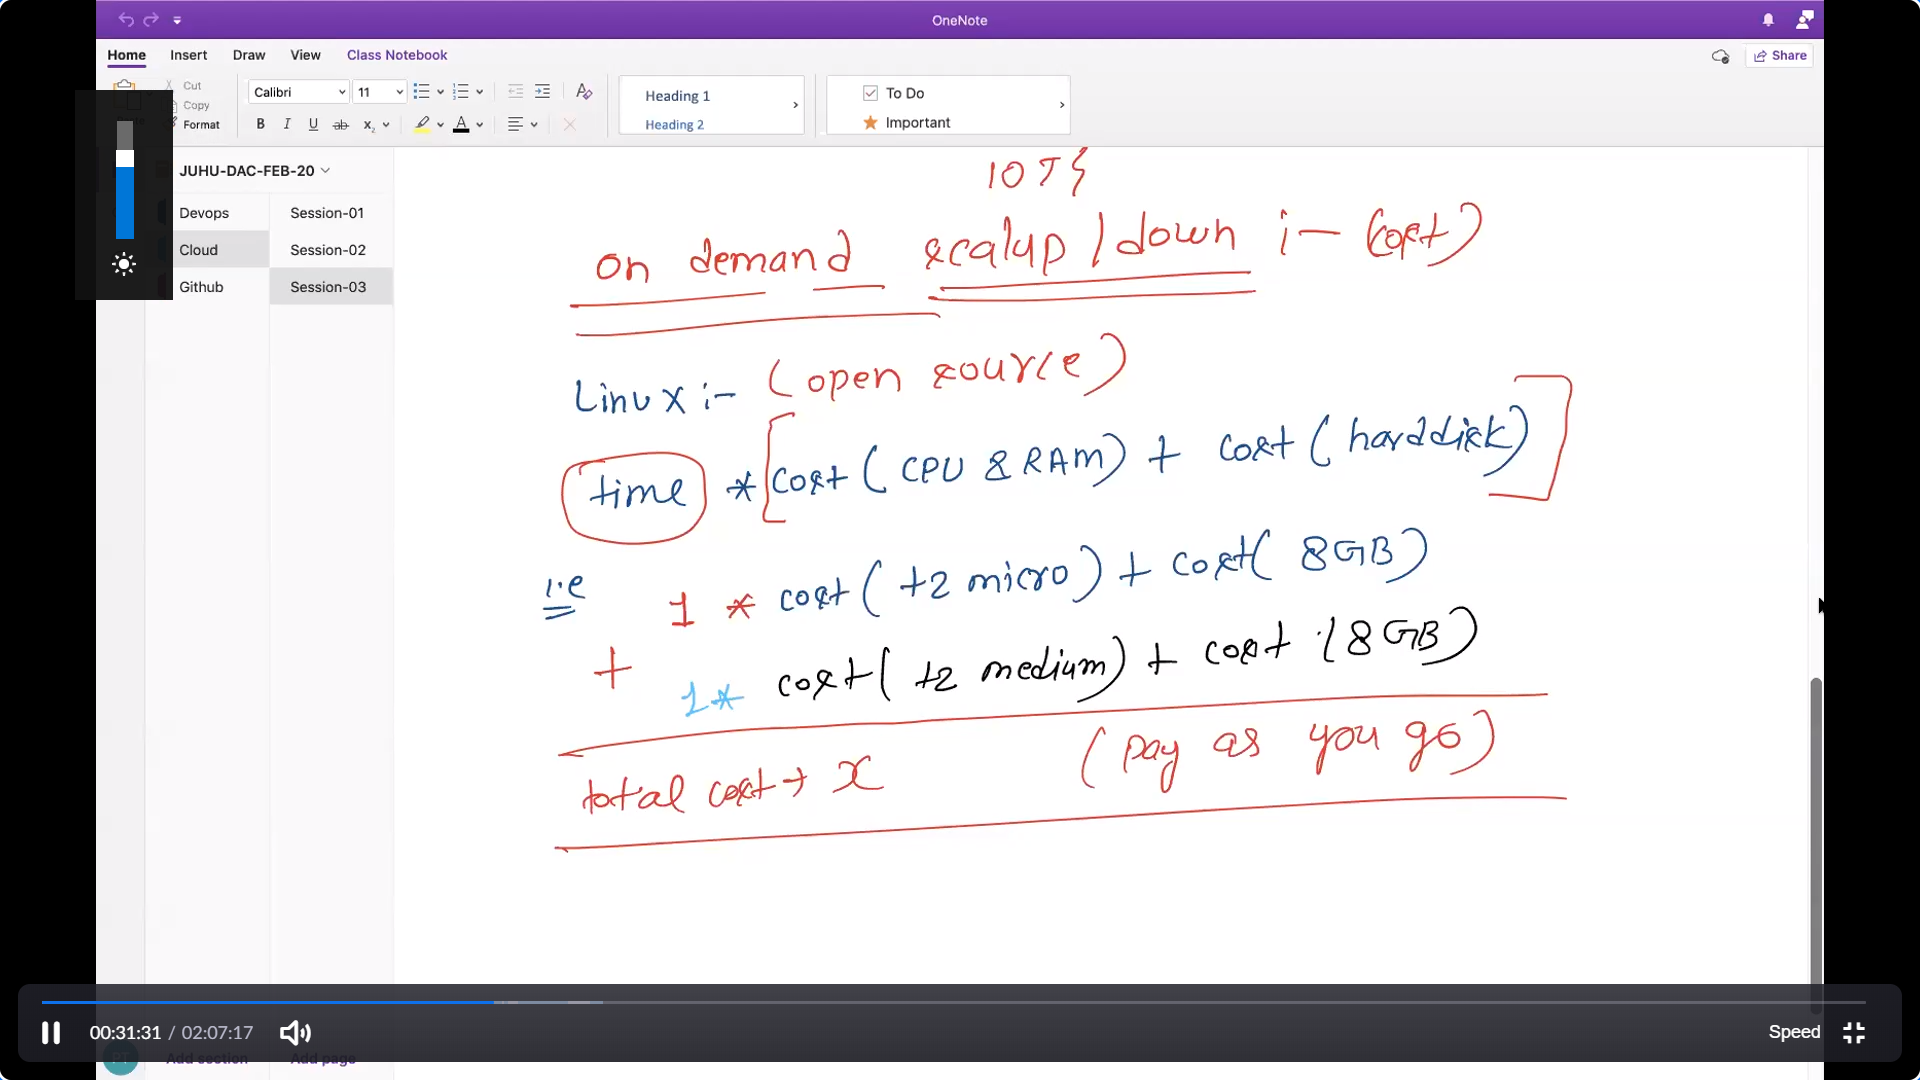 OneNote
Home Insert Draw View Class Notebook Share
Cut
Copy
Format
Calibri 11
B I U ab x₂ A
Heading 1
Heading 2
To Do
Important
JUHU-DAC-FEB-20
Devops Session-01
Cloud Session-02
Github Session-03
on demand scalup / down :- (cost)
Linux :- (open source)
time * [cost ( CPU & RAM) + cost ( harddisk)]
i.e 1 * cost ( t2 micro) + cost( 8GB)
+ 1* cost( t2 medium) + cost (8GB)
total cost → x (pay as you go)
00:31:31 / 02:07:17 Speed
Add section Add page